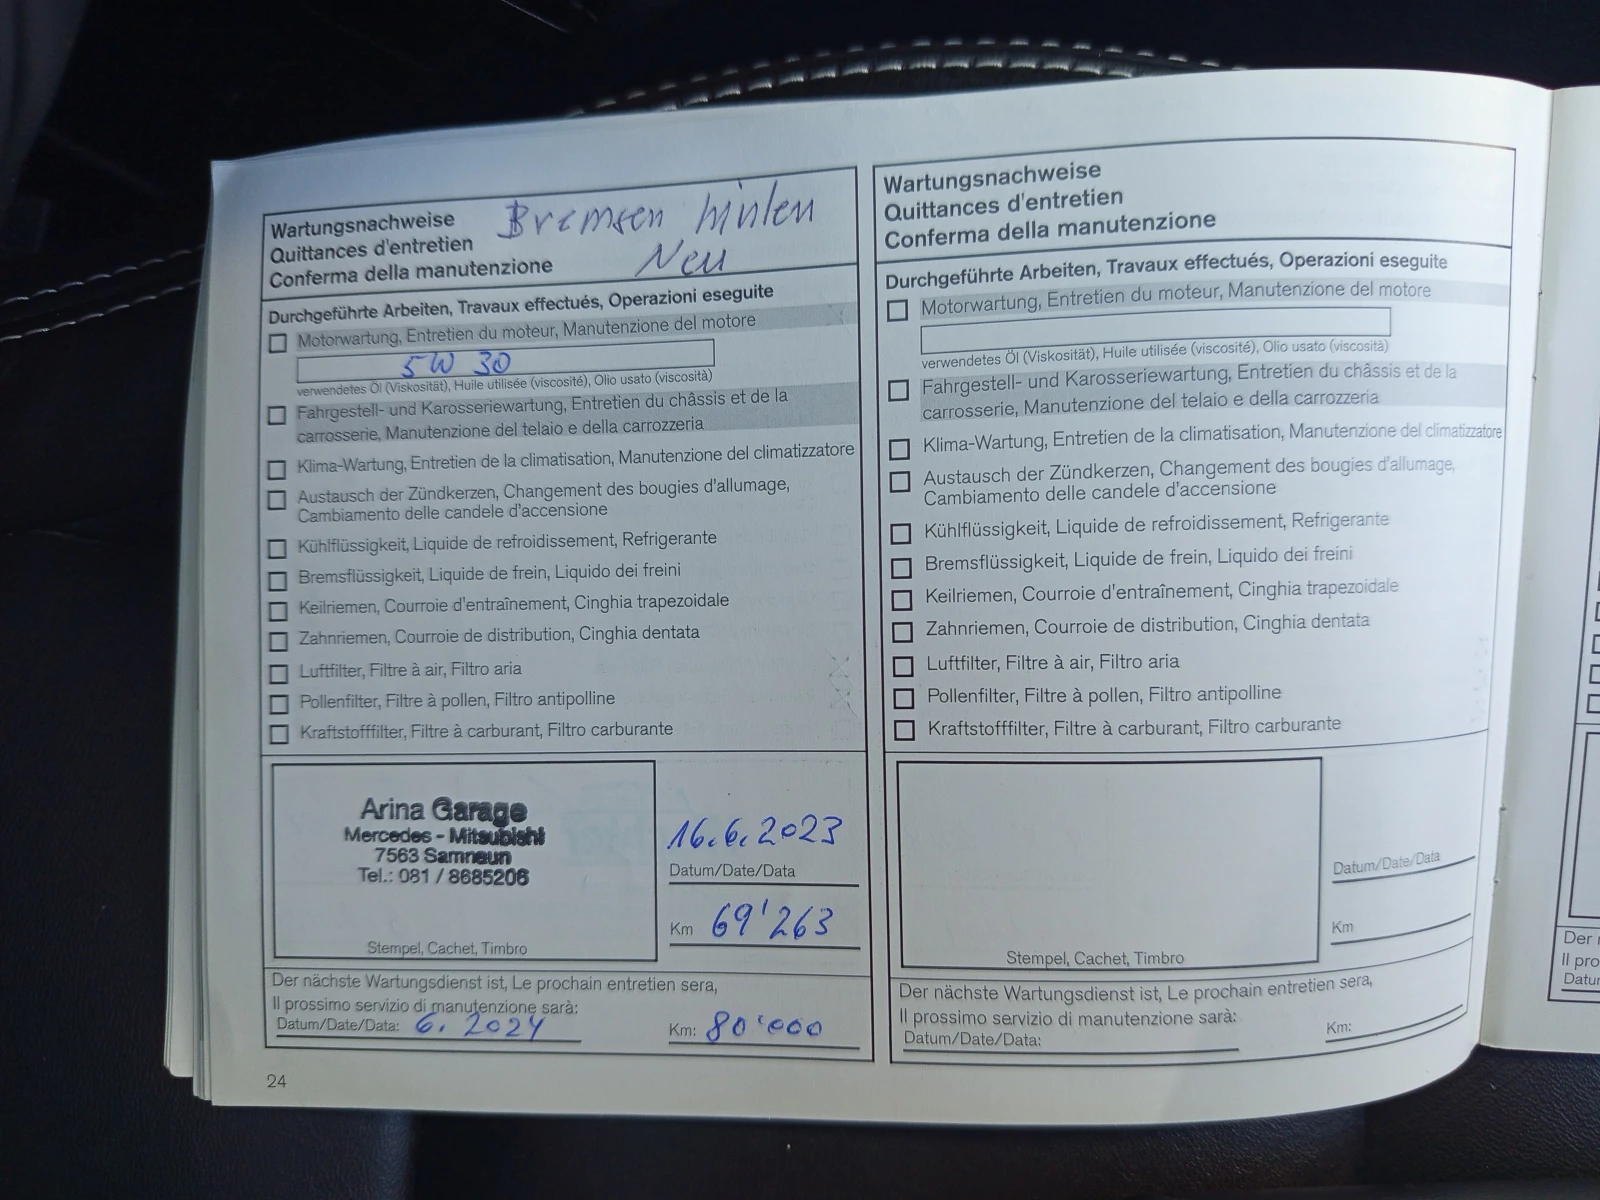 Wartungsnachweise
Quittances d'entretien
Conferma della manutenzione
Bremsen hinten
Neu
Durchgeführte Arbeiten, Travaux effectués, Operazioni eseguite
Motorwartung, Entretien du moteur, Manutenzione del motore
5W 30
verwendetes Öl (Viskosität), Huile utilisée (viscosité), Olio usato (viscosità)
Fahrgestell- und Karosseriewartung, Entretien du châssis et de la
carrosserie, Manutenzione del telaio e della carrozzeria
Klima-Wartung, Entretien de la climatisation, Manutenzione del climatizzatore
Austausch der Zündkerzen, Changement des bougies d'allumage,
Cambiamento delle candele d'accensione
Kühlflüssigkeit, Liquide de refroidissement, Refrigerante
Bremsflüssigkeit, Liquide de frein, Liquido dei freini
Keilriemen, Courroie d'entraînement, Cinghia trapezoidale
Zahnriemen, Courroie de distribution, Cinghia dentata
Luftfilter, Filtre à air, Filtro aria
Pollenfilter, Filtre à pollen, Filtro antipolline
Kraftstofffilter, Filtre à carburant, Filtro carburante
Arina Garage
Mercedes - Mitsubishi
7563 Samnaun
Tel.: 081 / 8685206
Stempel, Cachet, Timbro
16.6.2023
Datum/Date/Data
Km 69'263
Der nächste Wartungsdienst ist, Le prochain entretien sera,
Il prossimo servizio di manutenzione sarà:
Datum/Date/Data: 6. 2024
Km: 80'000
24
Wartungsnachweise
Quittances d'entretien
Conferma della manutenzione
Durchgeführte Arbeiten, Travaux effectués, Operazioni eseguite
Motorwartung, Entretien du moteur, Manutenzione del motore
verwendetes Öl (Viskosität), Huile utilisée (viscosité), Olio usato (viscosità)
Fahrgestell- und Karosseriewartung, Entretien du châssis et de la
carrosserie, Manutenzione del telaio e della carrozzeria
Klima-Wartung, Entretien de la climatisation, Manutenzione del climatizzatore
Austausch der Zündkerzen, Changement des bougies d'allumage,
Cambiamento delle candele d'accensione
Kühlflüssigkeit, Liquide de refroidissement, Refrigerante
Bremsflüssigkeit, Liquide de frein, Liquido dei freini
Keilriemen, Courroie d'entraînement, Cinghia trapezoidale
Zahnriemen, Courroie de distribution, Cinghia dentata
Luftfilter, Filtre à air, Filtro aria
Pollenfilter, Filtre à pollen, Filtro antipolline
Kraftstofffilter, Filtre à carburant, Filtro carburante
Stempel, Cachet, Timbro
Datum/Date/Data
Km
Der nächste Wartungsdienst ist, Le prochain entretien sera,
Il prossimo servizio di manutenzione sarà:
Datum/Date/Data:
Km:
Der
Il pro
Datu